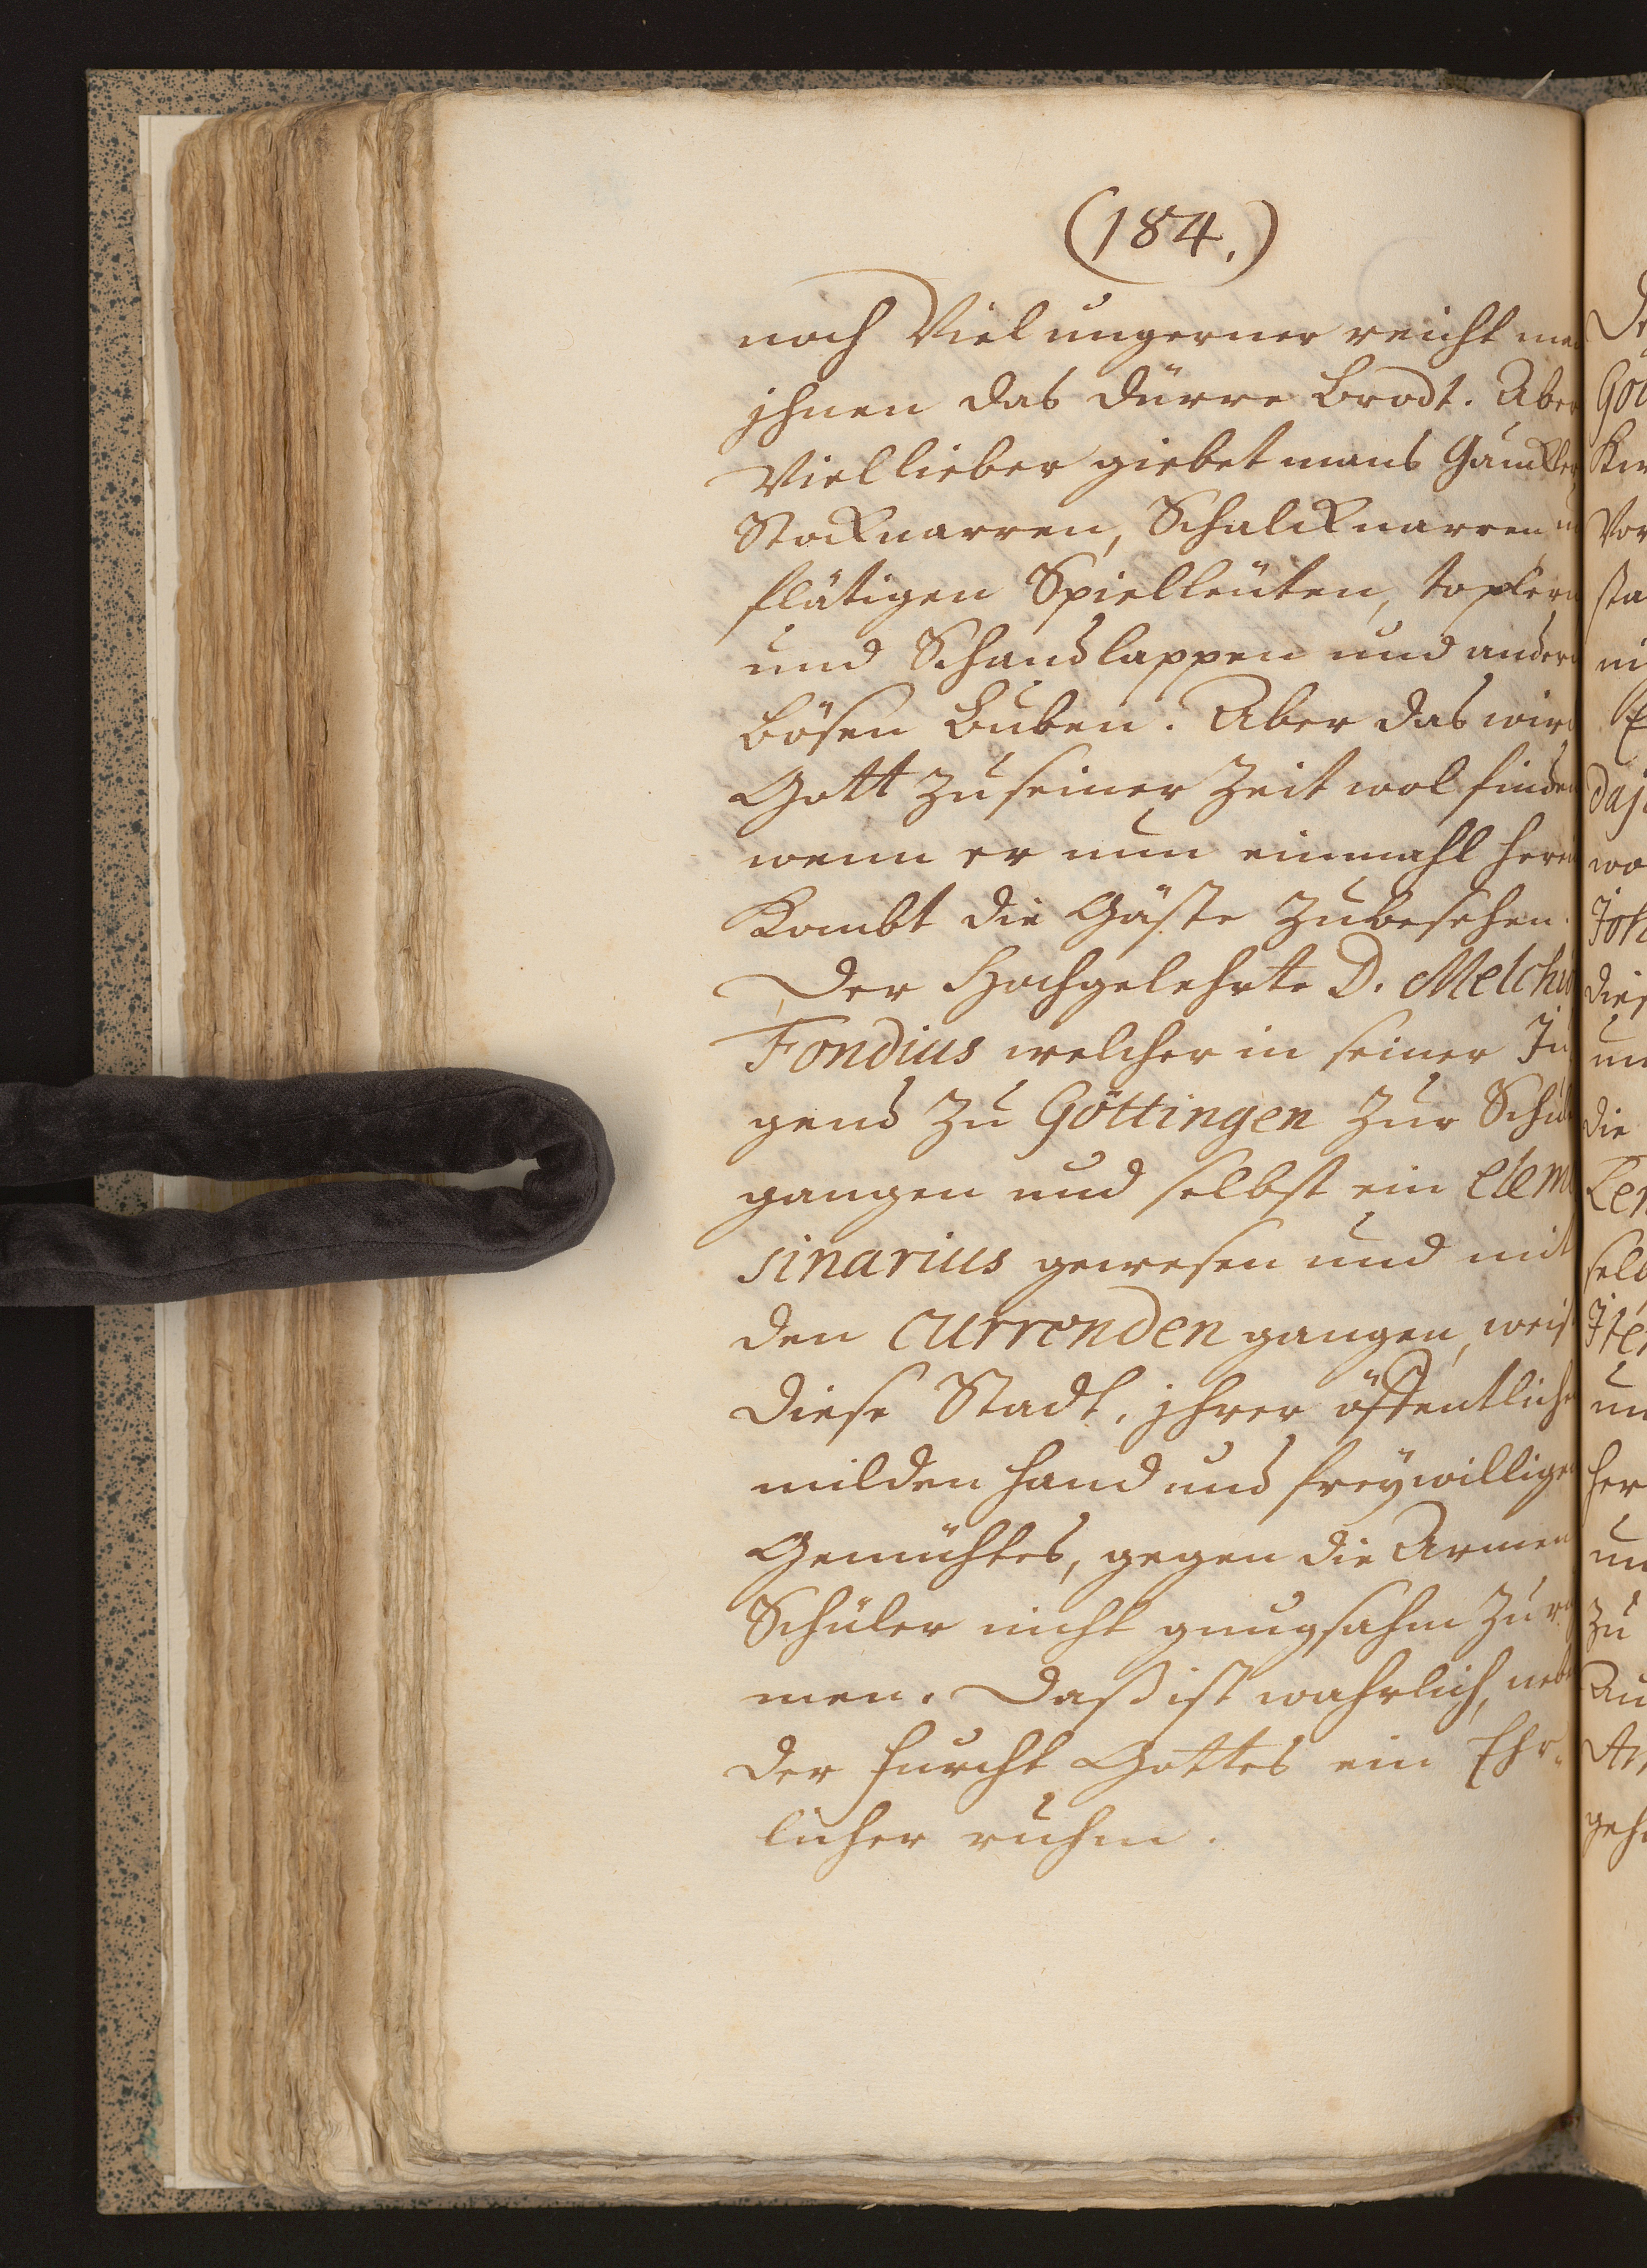 (184.)
noch Viel ungerner reicht man
jhnen das dürre Brodt. Aber
Viel lieber giebet mans Gauckler
Stocknarren, Schalcknarren
flätigen Spielleüten,
und Schandlappen und andern
bösen Buben. Aber das wird
Gott zu seiner Zeit wol finden
wenn er nun einmahl herein
Kombt die Gäste zubesehen.
Der Hochgelehrte D. Melchio
Fondius welcher in seiner Ju
gend zu Göttingen zur Schul
gangen und selbst ein elemo
sinarius gewesen und mit
den currenden gangen, weis
diese Stadt, jhrer öffentlichen
milden hand und freywilligen
Gemühtes, gegen die Armen
Schüler nicht gnugsahm zu rü
men. Daß ist wahrlich, neben
der furcht Gottes ein Ehr-
licher ruhm.